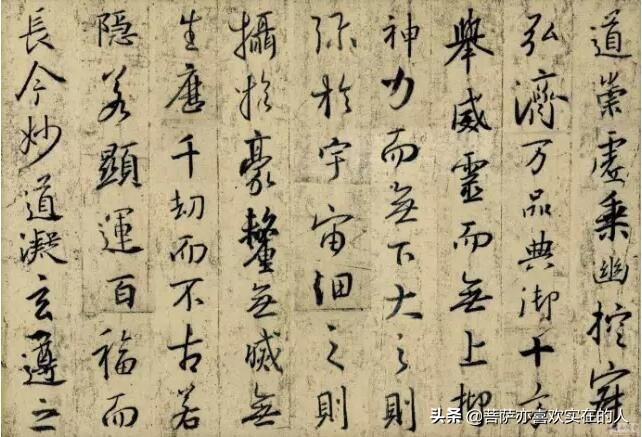 道崇虛乘幽控寂
弘濟万品典御十方
舉威靈而無上抑
神力而無下大之則
弥於宇宙細之則
攝於豪釐無滅無
生歷千劫而不古若
隱若顯運百福而
長今妙道凝玄遵之
头条 @菩萨亦喜欢实在的人